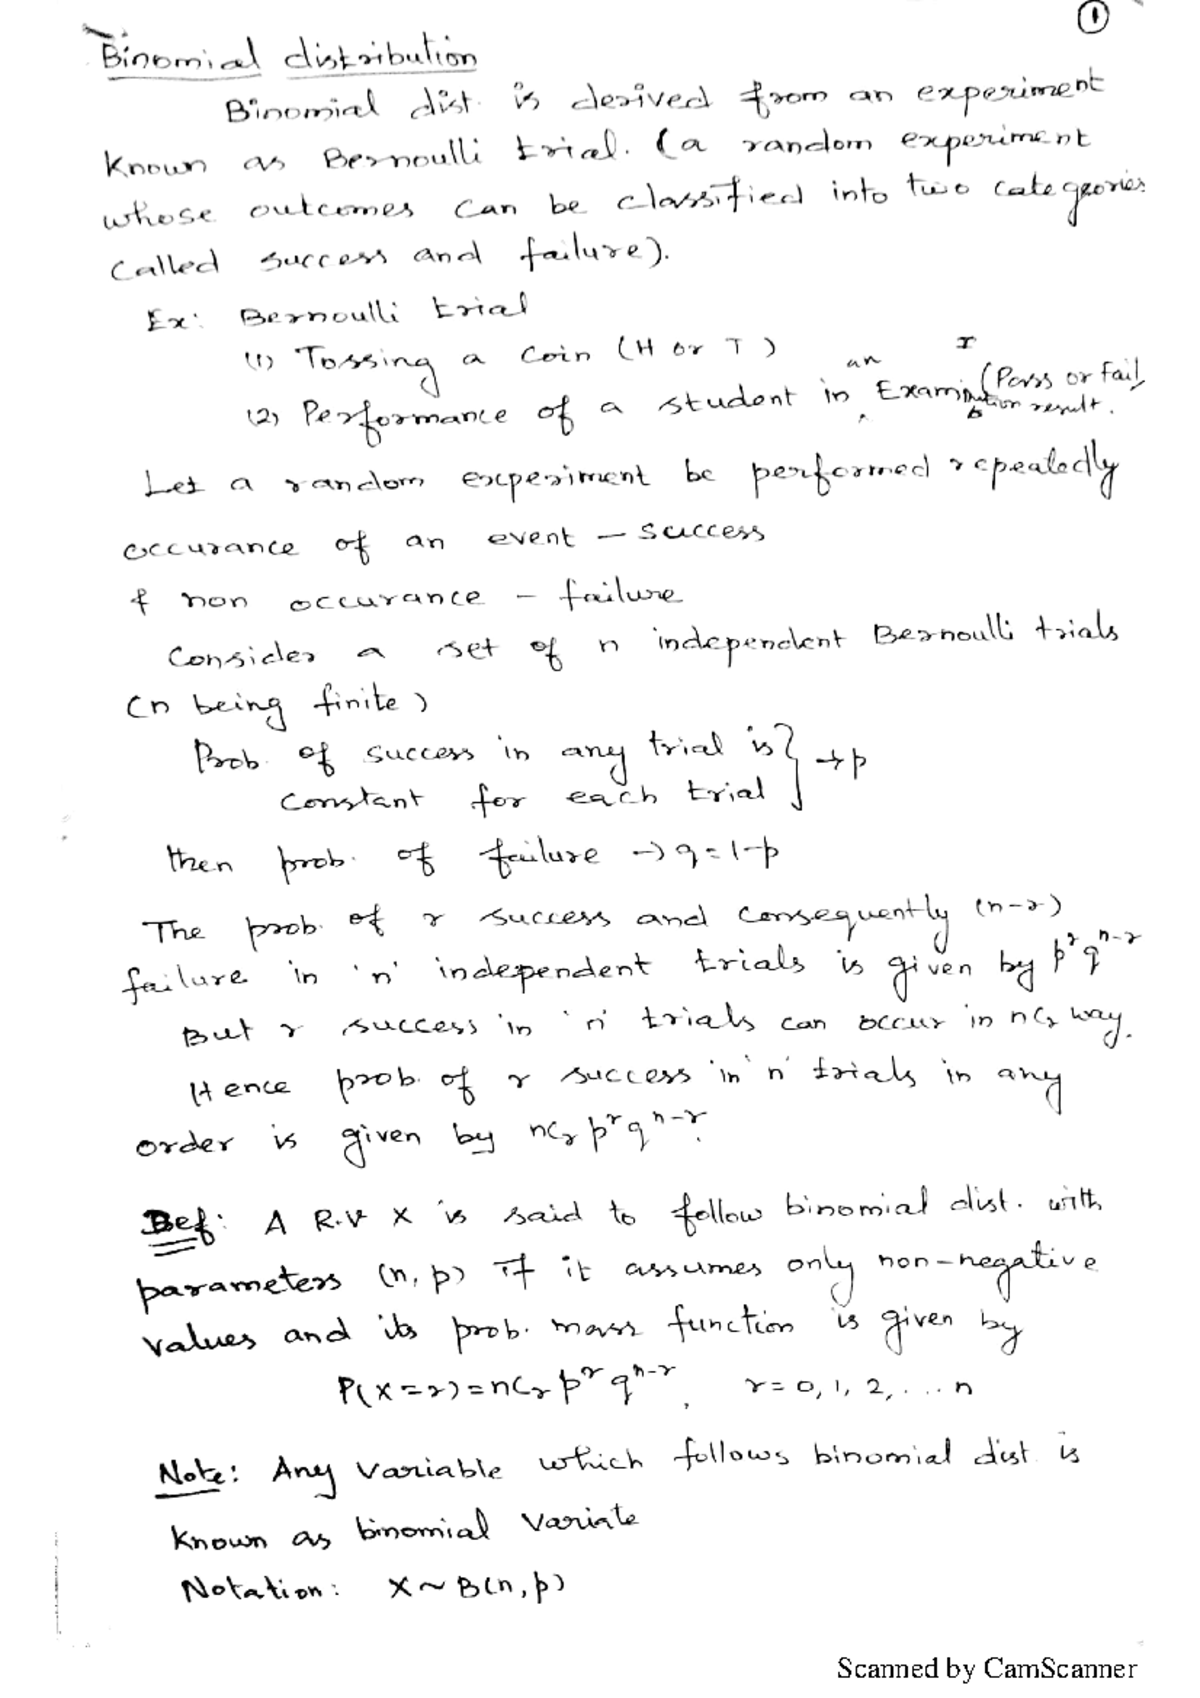 1
Binomial distribution
Binomial dist. is derived from an experiment
known as Bernoulli trial. (a random experiment
whose outcomes can be classified into two categeories
called success and failure).
Ex: Bernoulli trial
(1) Tossing a coin (H or T)
(2) Performance of a student in an Examination result. (Pass or Fail
Let a random experiment be performed repeatedly
occurance of an event - success
& non occurance - failure
Consider a set of n independent Bernoulli trials
(n being finite)
Prob. of success in any trial is } → p
constant for each trial
then prob. of failure → q = 1-p
The prob. of r success and consequently (n-r)
failure in 'n' independent trials is given by p^r q^n-r
But r success in 'n' trials can occur in nCr way.
Hence prob. of r success in 'n' trials in any
order is given by nCr p^r q^n-r.
Def: A R.V X is said to follow binomial dist. with
parameters (n, p) if it assumes only non-negative
values and its prob. mass function is given by
P(X=r) = nCr p^r q^n-r, r = 0, 1, 2, ... n
Note: Any variable which follows binomial dist. is
known as binomial variate
Notation: X ~ B(n, p)
Scanned by CamScanner